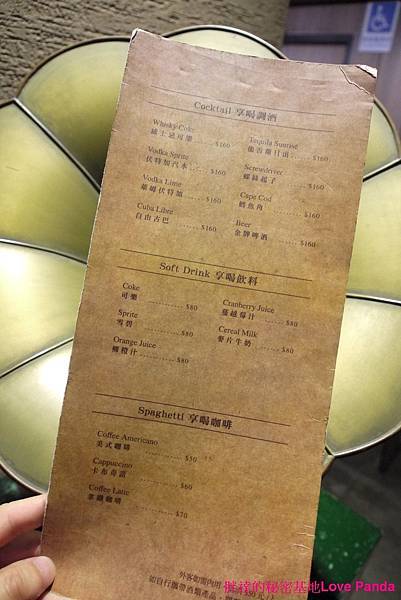 Cocktail 享喝調酒
Whisky Coke
威士忌可樂 ........ $160
Vodka Sprite
伏特加汽水 ........ $160
Vodka Lime
萊姆伏特加 ...... $160
Cuba Libre
自由古巴 ........ $160
Tequila Sunrise
龍舌蘭日出 ...... $160
Screwdriver
螺絲起子 ........ $160
Cape Cod
鱈魚角 .......... $160
Beer
金牌啤酒 ........ $160
Soft Drink 享喝飲料
Coke
可樂 ........... $80
Sprite
雪碧 ........... $80
Orange Juice
柳橙汁 .......... $80
Cranberry Juice
蔓越莓汁 ........ $80
Cereal Milk
麥片牛奶 ........ $80
Spaghetti 享喝咖啡
Coffee Americano
美式咖啡 .......... $50
Cappuccino
卡布奇諾 .......... $60
Coffee Latte
拿鐵咖啡 .......... $70
外客如需內用
如自行攜帶酒類產品
胖達的秘密基地Love Panda